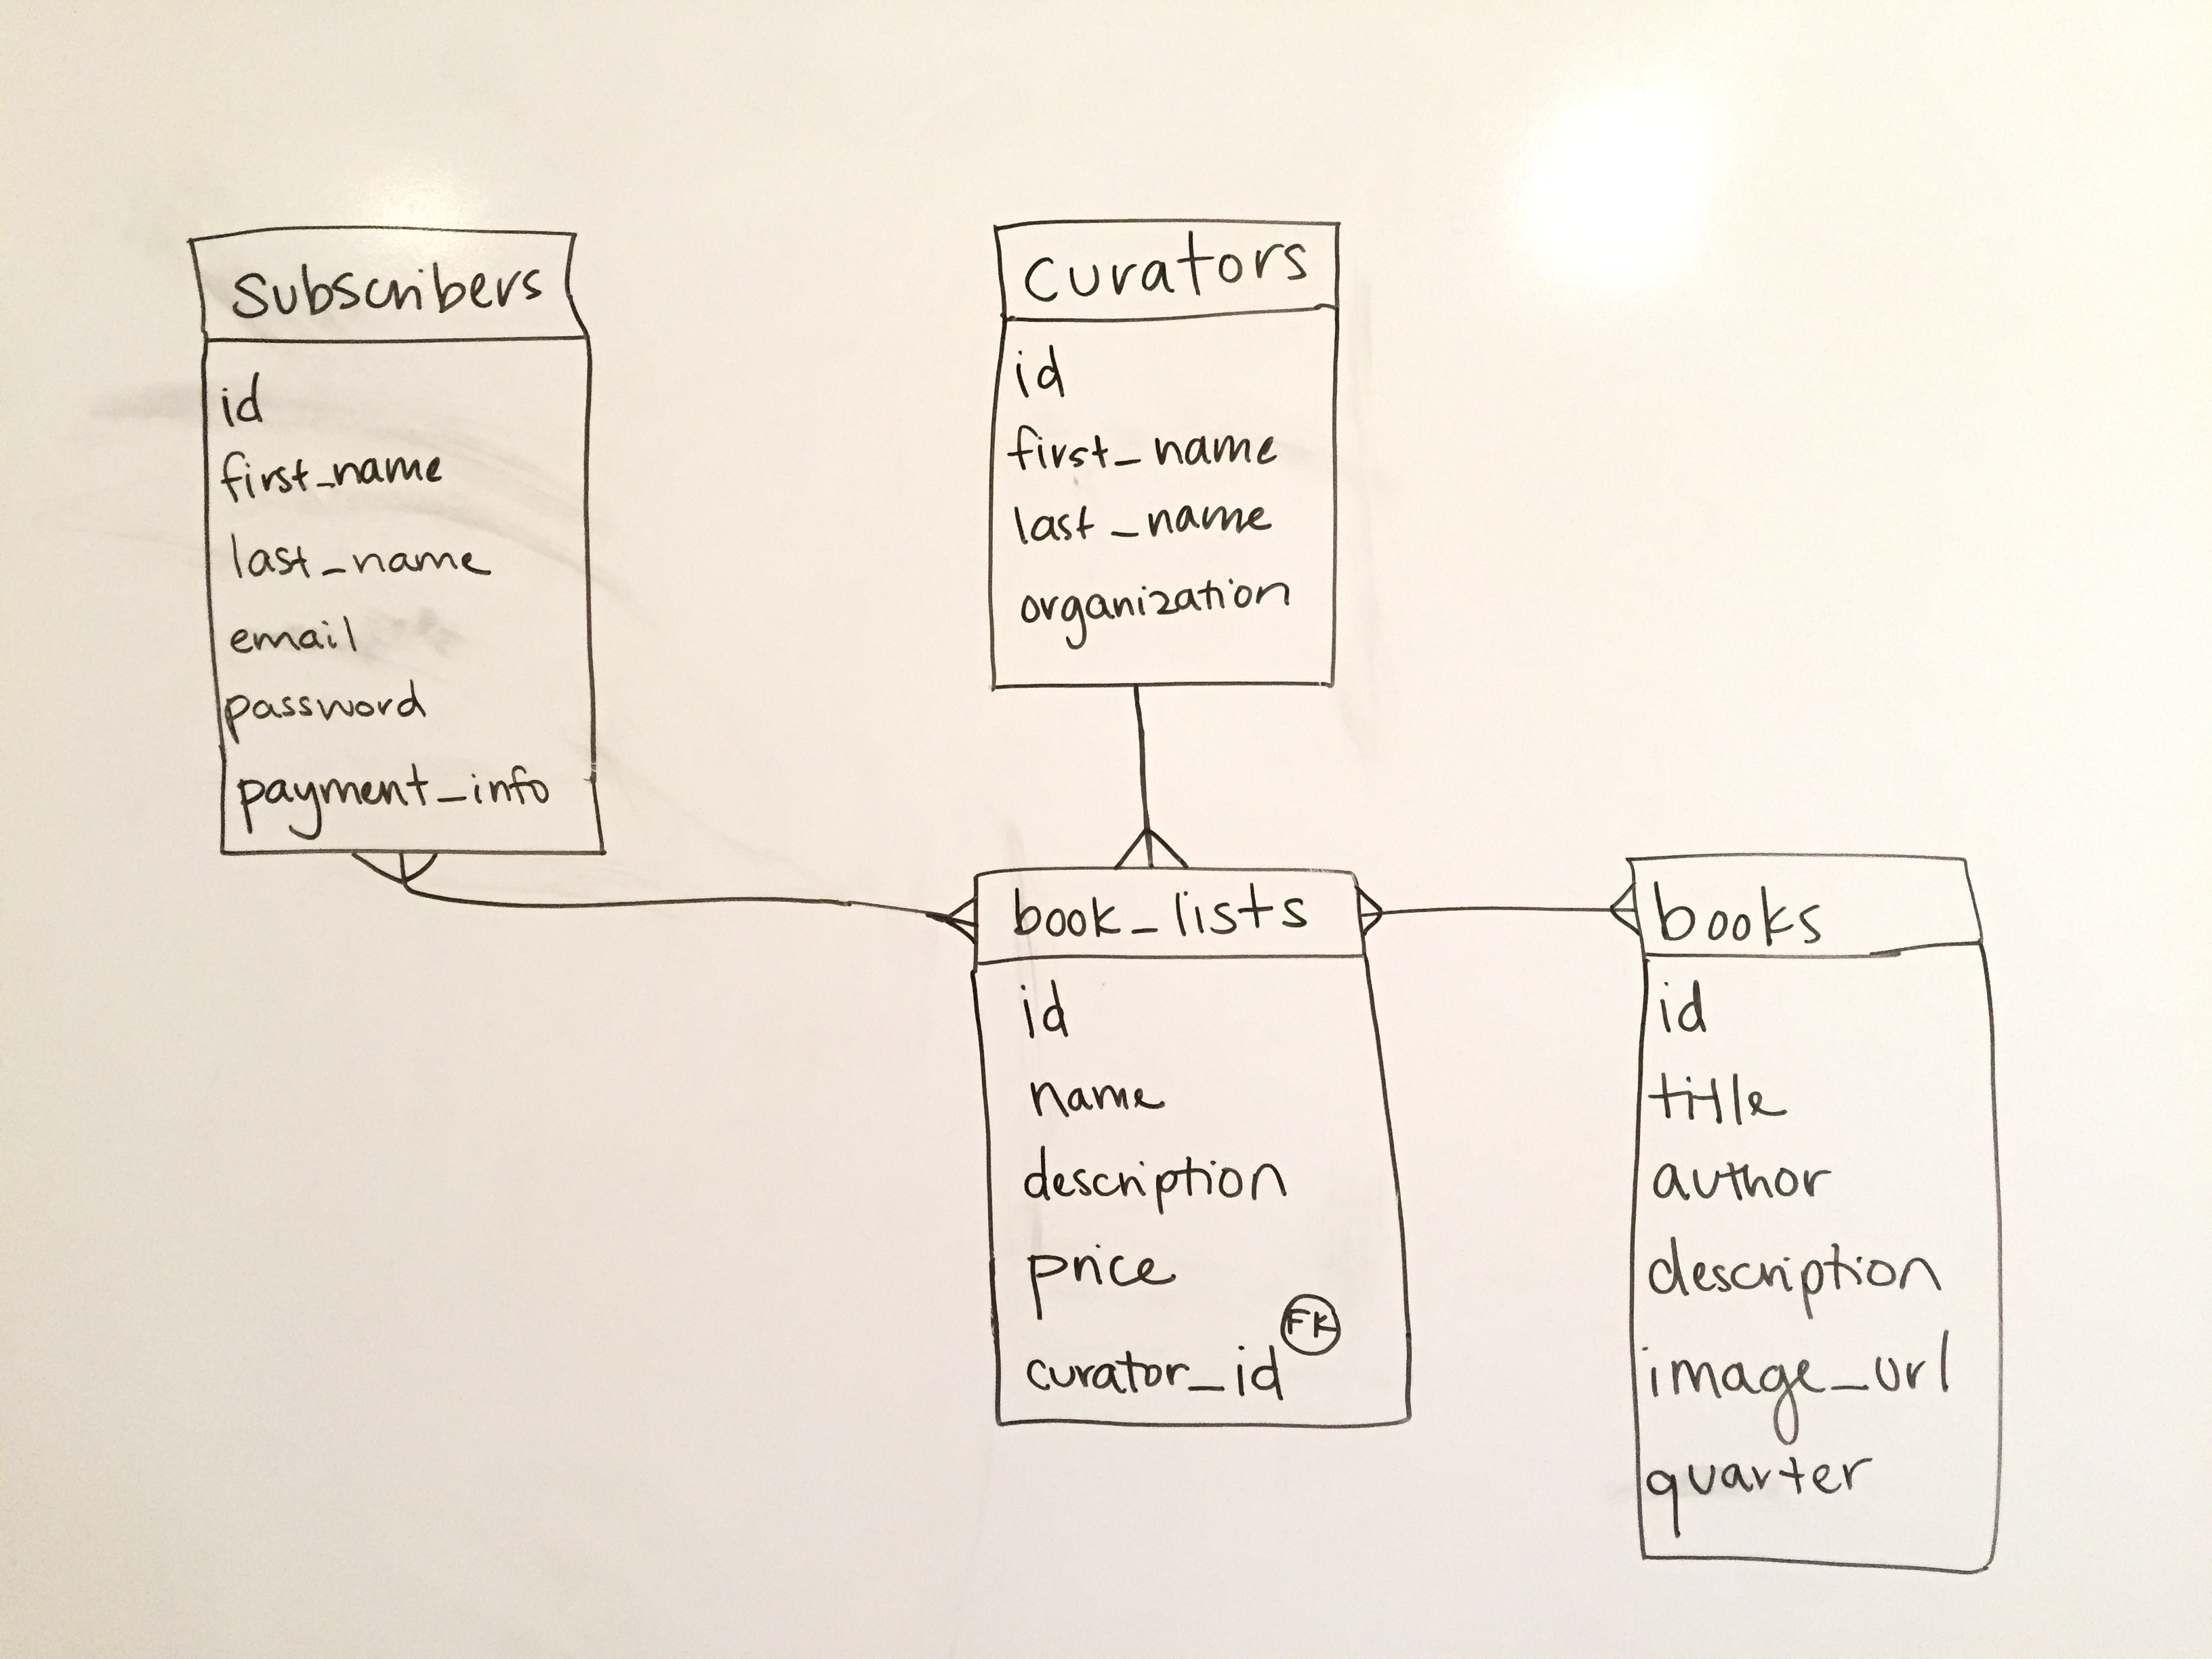 Subscribers
id
first_name
last_name
email
password
payment_info
curators
id
first_name
last_name
organization
book_lists
id
name
description
price
curator_id FK
books
id
title
author
description
image_url
quarter